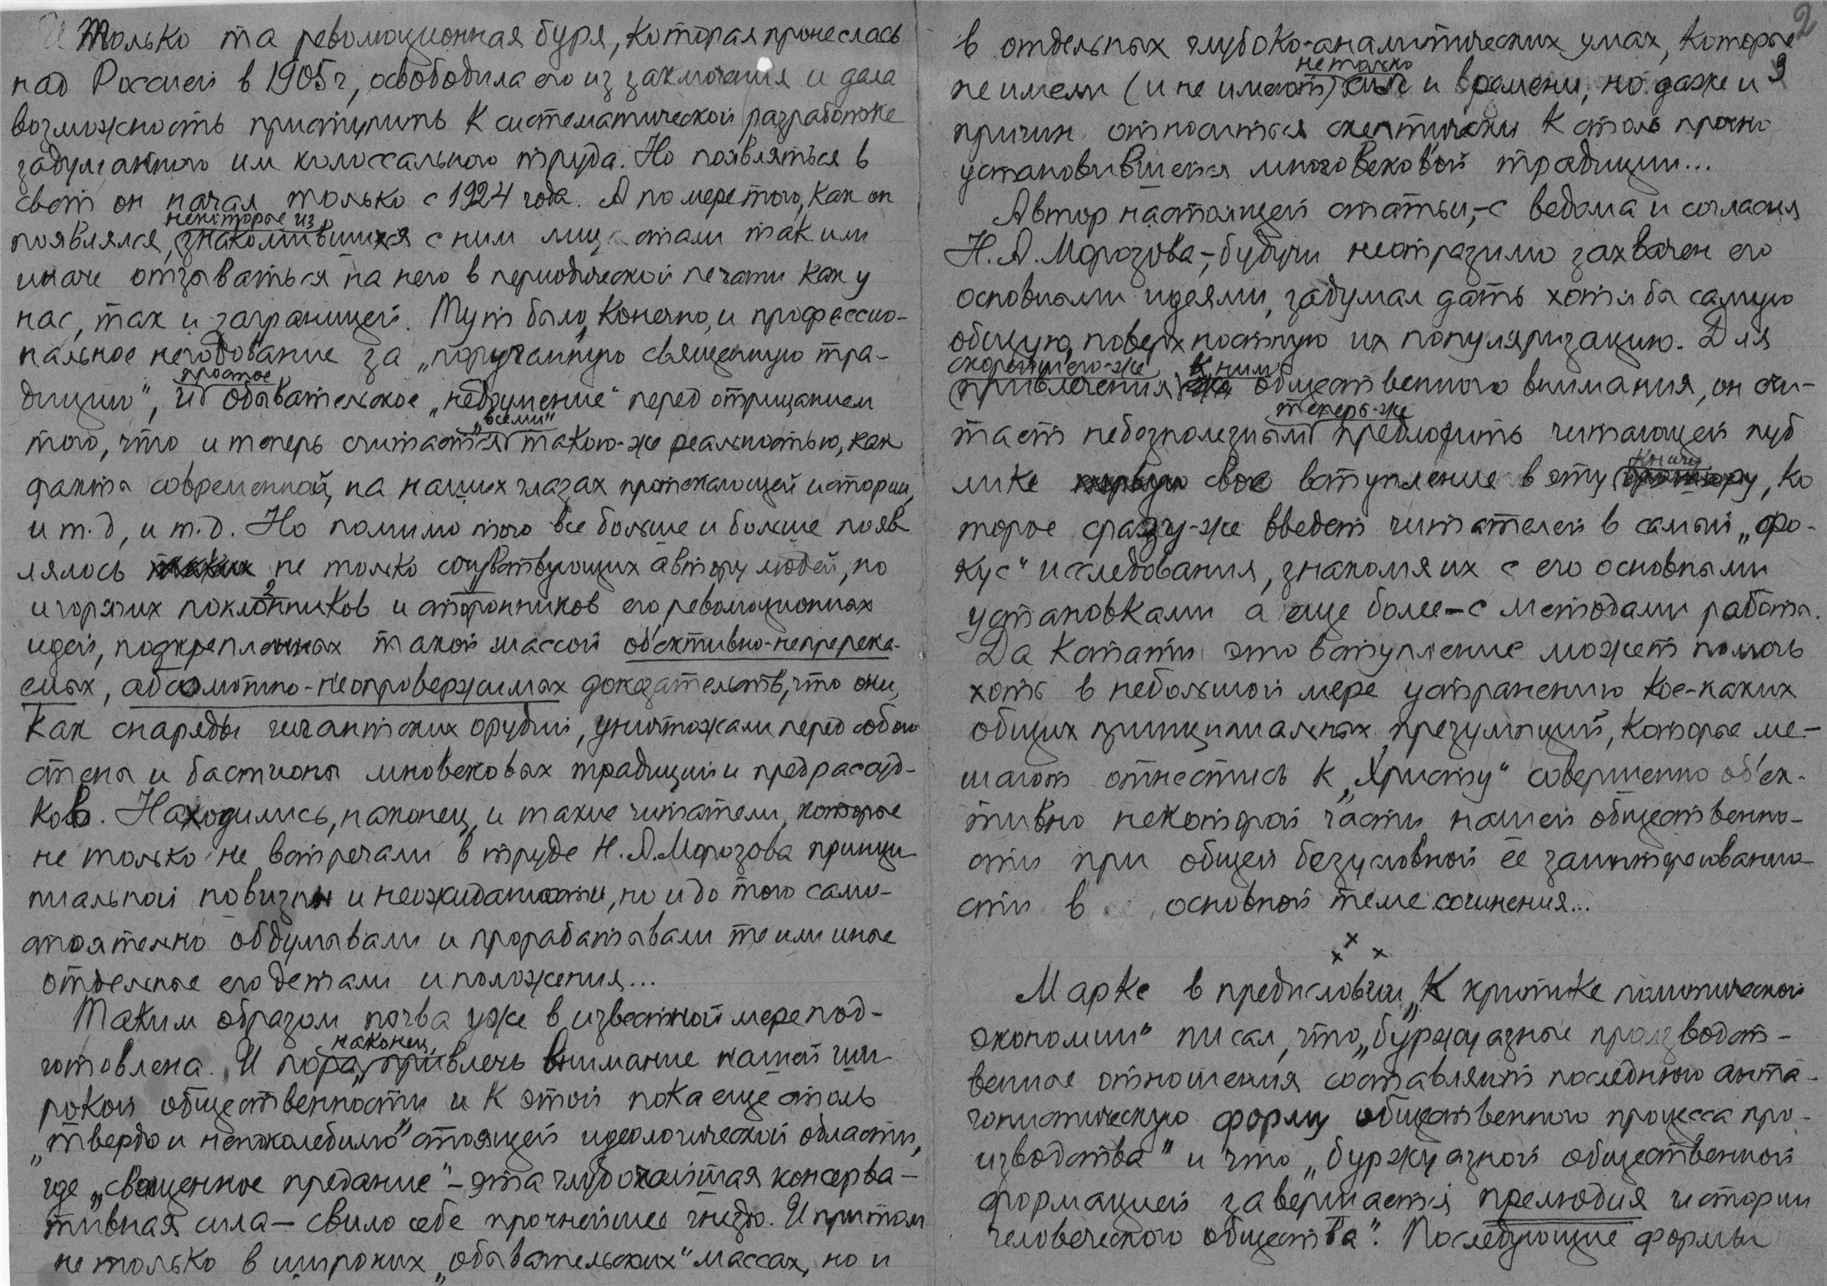 И только та революционная буря, которая пронеслась
над Россией в 1905 г, освободила его из заключения и дала
возможность приступить к систематической разработке
задуманного им колоссального труда. Но появляться в
свет он начал только с 1924 года. А по мере того, как он
некоторые из
появлялся, знакомившихся с ним лиц стали так или
иначе отзываться на него в периодической печати как у
нас, так и заграницей. Тут было, конечно, и профессио-
нальное негодование за „поруганную священную тра-
простое
дицию", и обывательское „недоумение" перед отрицанием
„всеми"
того, что и теперь считается такою-же реальностью, как
факты современной, на наших глазах протекающей истории,
и т.д, и т.д. Но помимо того все больше и больше появ
лялось таких не только сочувствующих автору людей, но
и горячих поклонников и сторонников его революционных
идей, подкрепленных такой массой об'ективно-непререка-
емых, абсолютно-неопровержимых доказательств, что они,
как снаряды гигантских орудий, уничтожали перед собою
стены и бастионы многовековых традиций и предрассуд-
ков. Находились, наконец, и такие читатели, которые
не только не встречали в труде Н.А.Морозова принци
пиальной новизны и неожиданности, но и до того само-
стоятельно обдумывали и прорабатывали те или иные
отдельные его детали и положения...
Таким образом почва уже в известной мере под-
наконец,
готовлена. И пора, привлечь внимание нашей ши
рокой общественности и к этой пока еще столь
„твердо и непоколебимо" стоящей идеологической области,
где „священное предание" – эта глубочайшая консерва-
тивная сила – свило себе прочнейшее гнездо. И притом
не только в широких „обывательских" массах, но и
2
в отдельных глубоко-аналитических умах, которые
не только
не имели (и не имеют) сил и времени, но даже и
причин относиться скептически к столь прочно
установившейся многовековой традиции...
Автор настоящей статьи,-с ведома и согласия
Н.А.Морозова-, будучи неотразимо захвачен его
основными идеями, задумал дать хотя бы самую
общую, поверхностную их популяризацию. Для
скорейшего-же к ним
привлечения общественного внимания, он счи-
теперь-же
тает небезполезным предложить читающей пуб
лике свое вступление в эту
книгу
, ко
торое сразу-же введет читателей в самый „фо-
кус" исследования, знакомя их с его основными
установками а еще более-с методами работы.
Да кстати это вступление может помочь
хоть в небольшой мере устранению кое-каких
общих принципиальных презумпций, которые ме-
шают отнестись к „Христу" совершенно об'ек-
тивно некоторой части нашей общественно-
сти при общей безусловной ее заинтересованно
сти в основной теме сочинения...
х х х
Маркс в предисловии „К критике политической
экономии" писал, что „буржуазные производст-
венные отношения составляют последнюю анта-
гонистическую форму общественного процесса про-
изводства" и что „буржуазной общественной
формацией завершается прелюдия истории
человеческого общества". Последующие формы